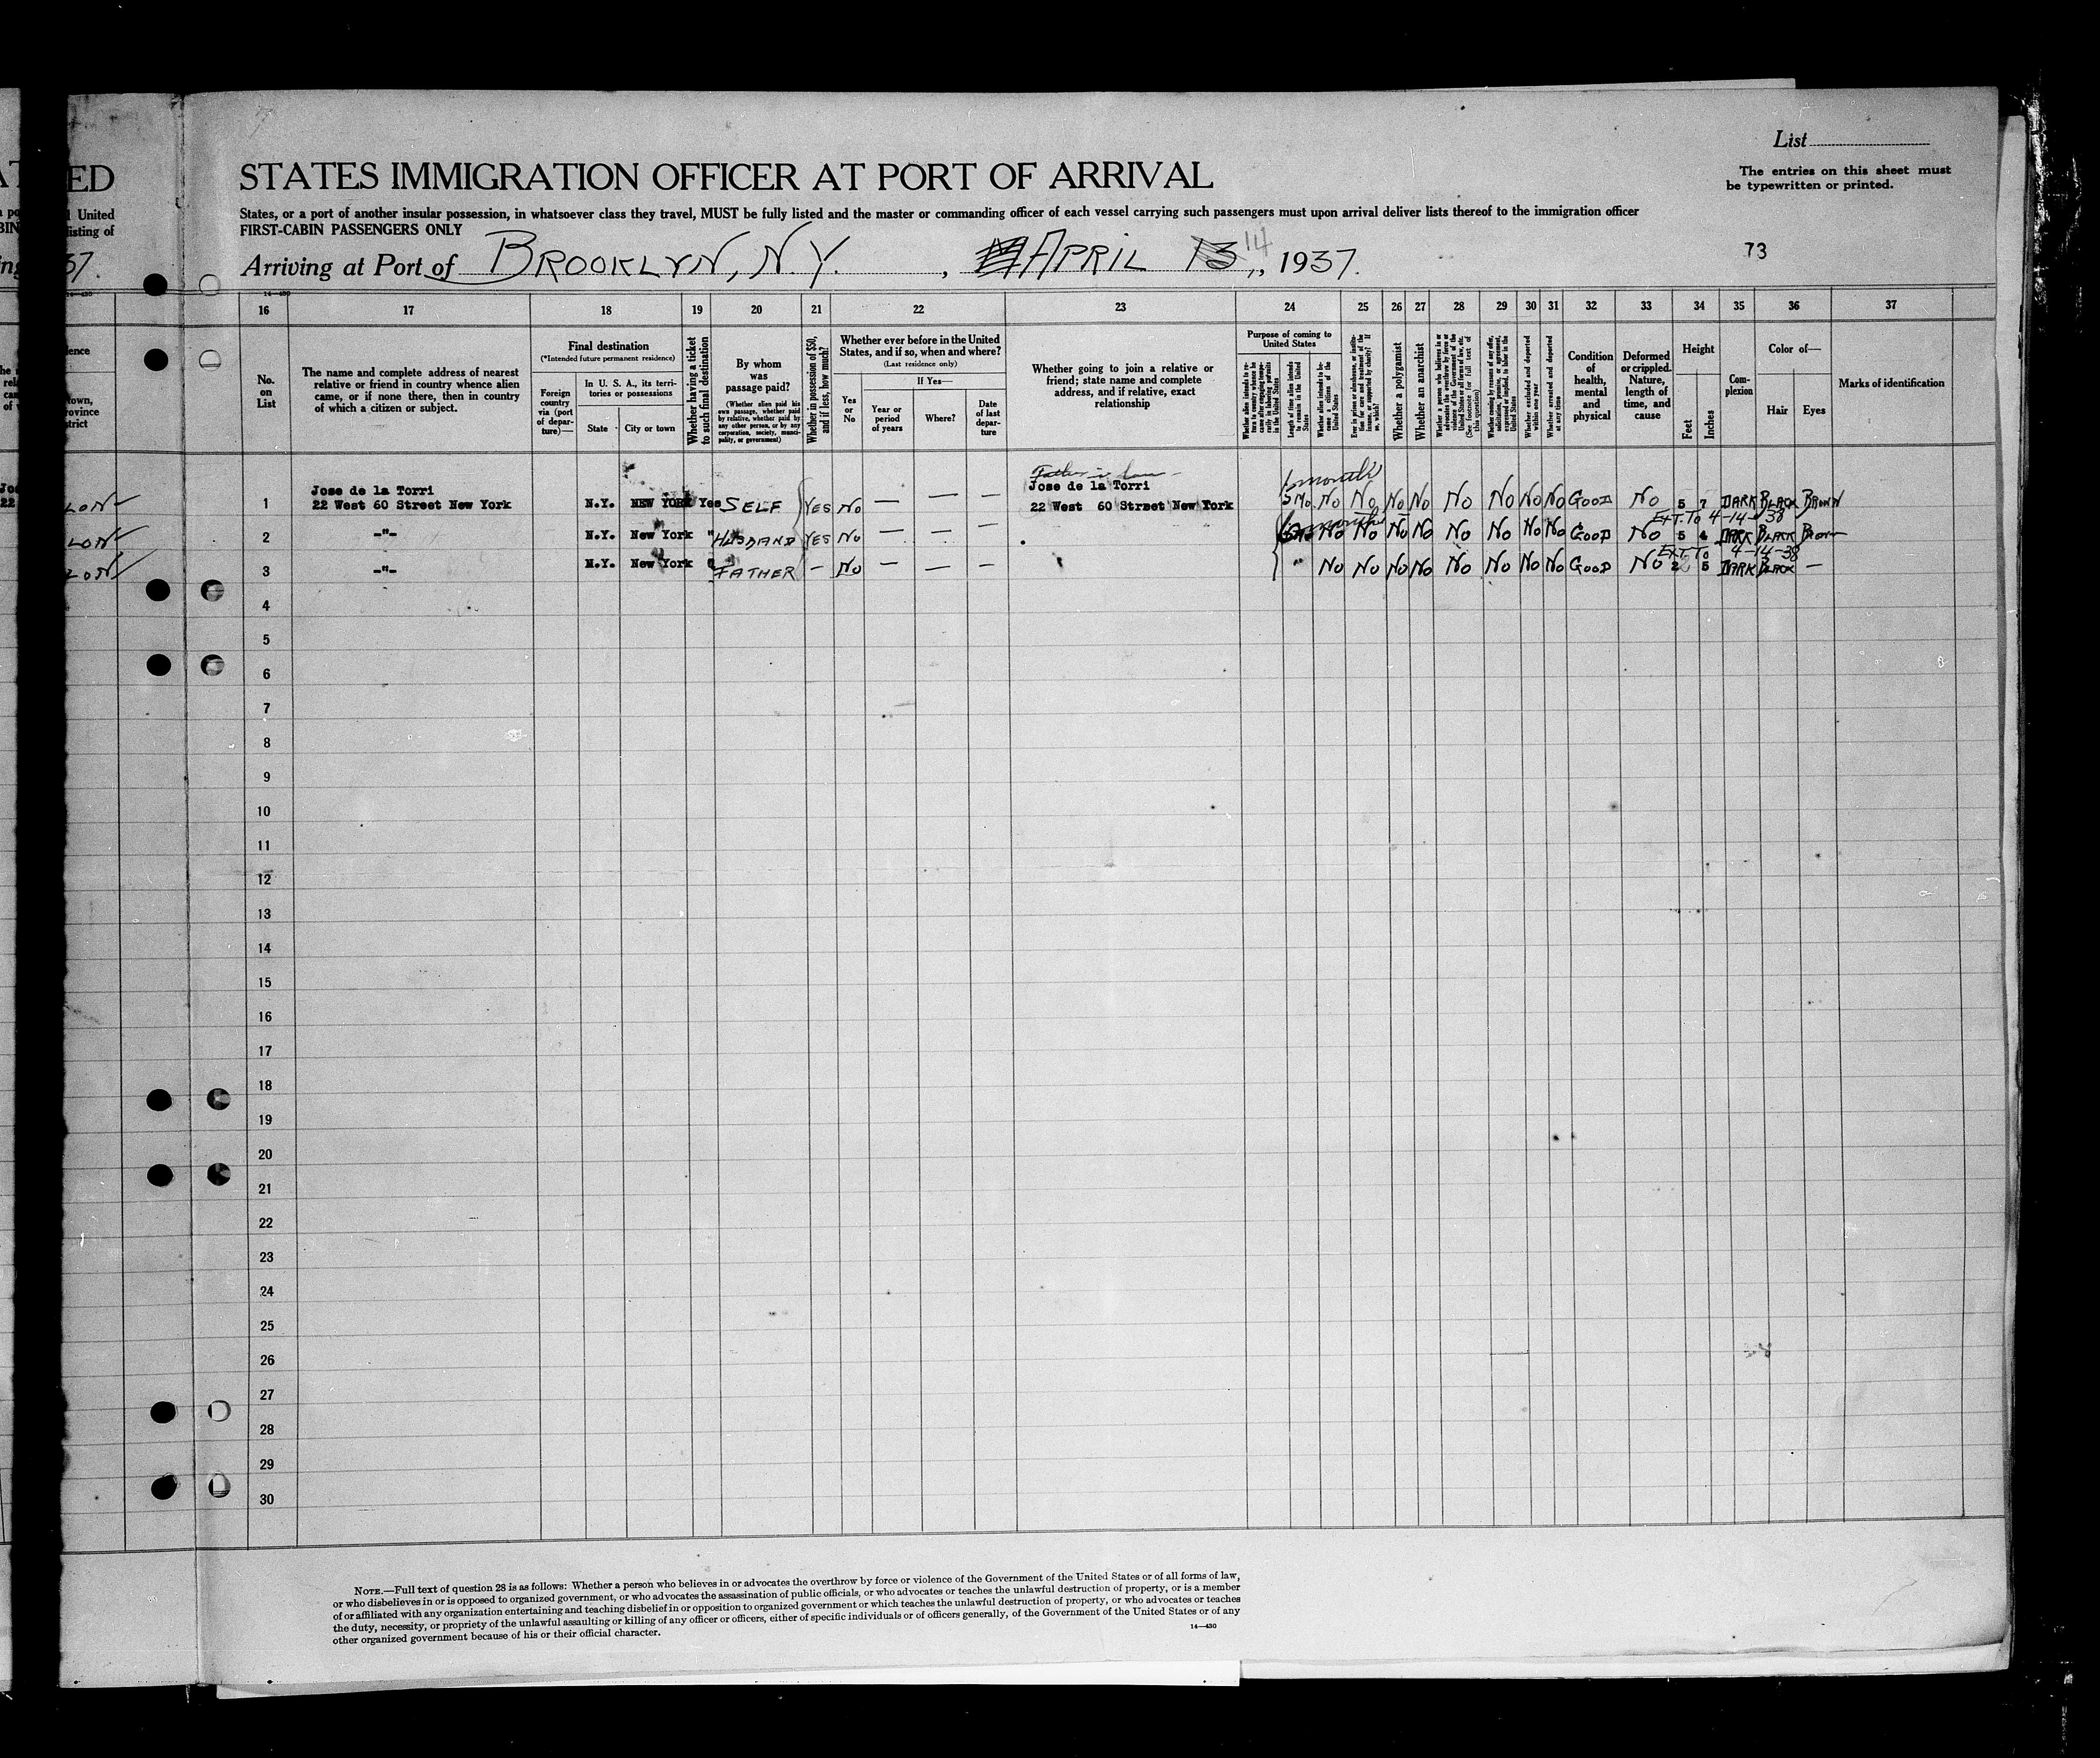 List
STATES IMMIGRATION OFFICER AT PORT OF ARRIVAL
The entries on this sheet must
be typewritten or printed.
States, or a port of another insular possession, in whatsoever class they travel, MUST be fully listed and the master or commanding officer of each vessel carrying such passengers must upon arrival deliver lists thereof to the immigration officer
FIRST-CABIN PASSENGERS ONLY
Arriving at Port of BROOKLYN, N.Y. , APRIL 13 14, 1937.
73
ED
United
isting of
37.
16 17 18 19 20 21 22 23 24 25 26 27 28 29 30 31 32 33 34 35 36 37
No.
on
List
The name and complete address of nearest
relative or friend in country whence alien
came, or if none there, then in country
of which a citizen or subject.
Final destination
(*Intended future permanent residence)
Foreign
country
via (port
of depar-
ture)—
In U. S. A., its terri-
tories or possessions
State
City or town
Whether having a ticket
to such final destination
By whom
was
passage paid?
(Whether alien paid his
own passage, whether paid
by relative, whether paid by
any other person, or by any
corporation, society, munici-
pality, or government)
Whether in possession of $50,
and if less, how much?
Whether ever before in the United
States, and if so, when and where?
(Last residence only)
If Yes—
Yes
or
No
Year or
period
of years
Where?
Date
of last
depar-
ture
Whether going to join a relative or
friend; state name and complete
address, and if relative, exact
relationship
Purpose of coming to
United States
Length of time alien intends
to remain in the United
States
Whether alien intends to be-
come a citizen of the
United States
Whether a polygamist
Whether an anarchist
Whether arrested and deported
within one year
Whether arrested and deported
at any time
Condition
of
health,
mental
and
physical
Deformed
or crippled.
Nature,
length of
time, and
cause
Height
Feet
Inches
Com-
plexion
Color of—
Hair
Eyes
Marks of identification
Father in law
Jose de la Torri Jose de la Torri 6 months
1 22 West 60 Street New York N.Y. NEW YORK Yes SELF YES No — — — 22 West 60 Street New York No No No No No No No No GOOD No 5 7 DARK BLACK BROWN
EXT. TO 4-14-38
2 -"- N.Y. New York " HUSBAND YES No — — — No No No No No No No No GOOD No 5 4 DARK BLACK BROWN
EXT. TO 4-14-38
3 -"- N.Y. New York " FATHER — No — — — " No No No No No No No No GOOD No 2 5 DARK BLACK —
4
5
6
7
8
9
10
11
12
13
14
15
16
17
18
19
20
21
22
23
24
25
26
27
28
29
30
NOTE.—Full text of question 28 is as follows: Whether a person who believes in or advocates the overthrow by force or violence of the Government of the United States or of all forms of law,
or who disbelieves in or is opposed to organized government, or who advocates the assassination of public officials, or who advocates or teaches the unlawful destruction of property, or is a member
of or affiliated with any organization entertaining and teaching disbelief in or opposition to organized government or which teaches the unlawful destruction of property, or who advocates or teaches
the duty, necessity, or propriety of the unlawful assaulting or killing of any officer or officers, either of specific individuals or of officers generally, of the Government of the United States or of any
other organized government because of his or their official character.
14—430